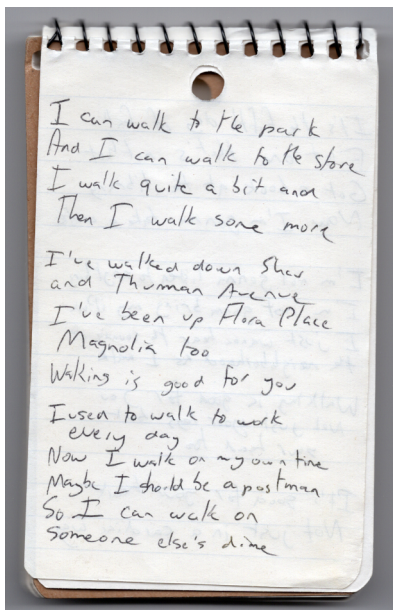 I can walk to the park
And I can walk to the store
I walk quite a bit and
Then I walk some more
I've walked down Shaw
and Thurman Avenue
I've been up Flora Place
Magnolia too
Walking is good for you
I used to walk to work
every day
Now I walk on my own time
Maybe I should be a postman
So I can walk on
someone else's dime